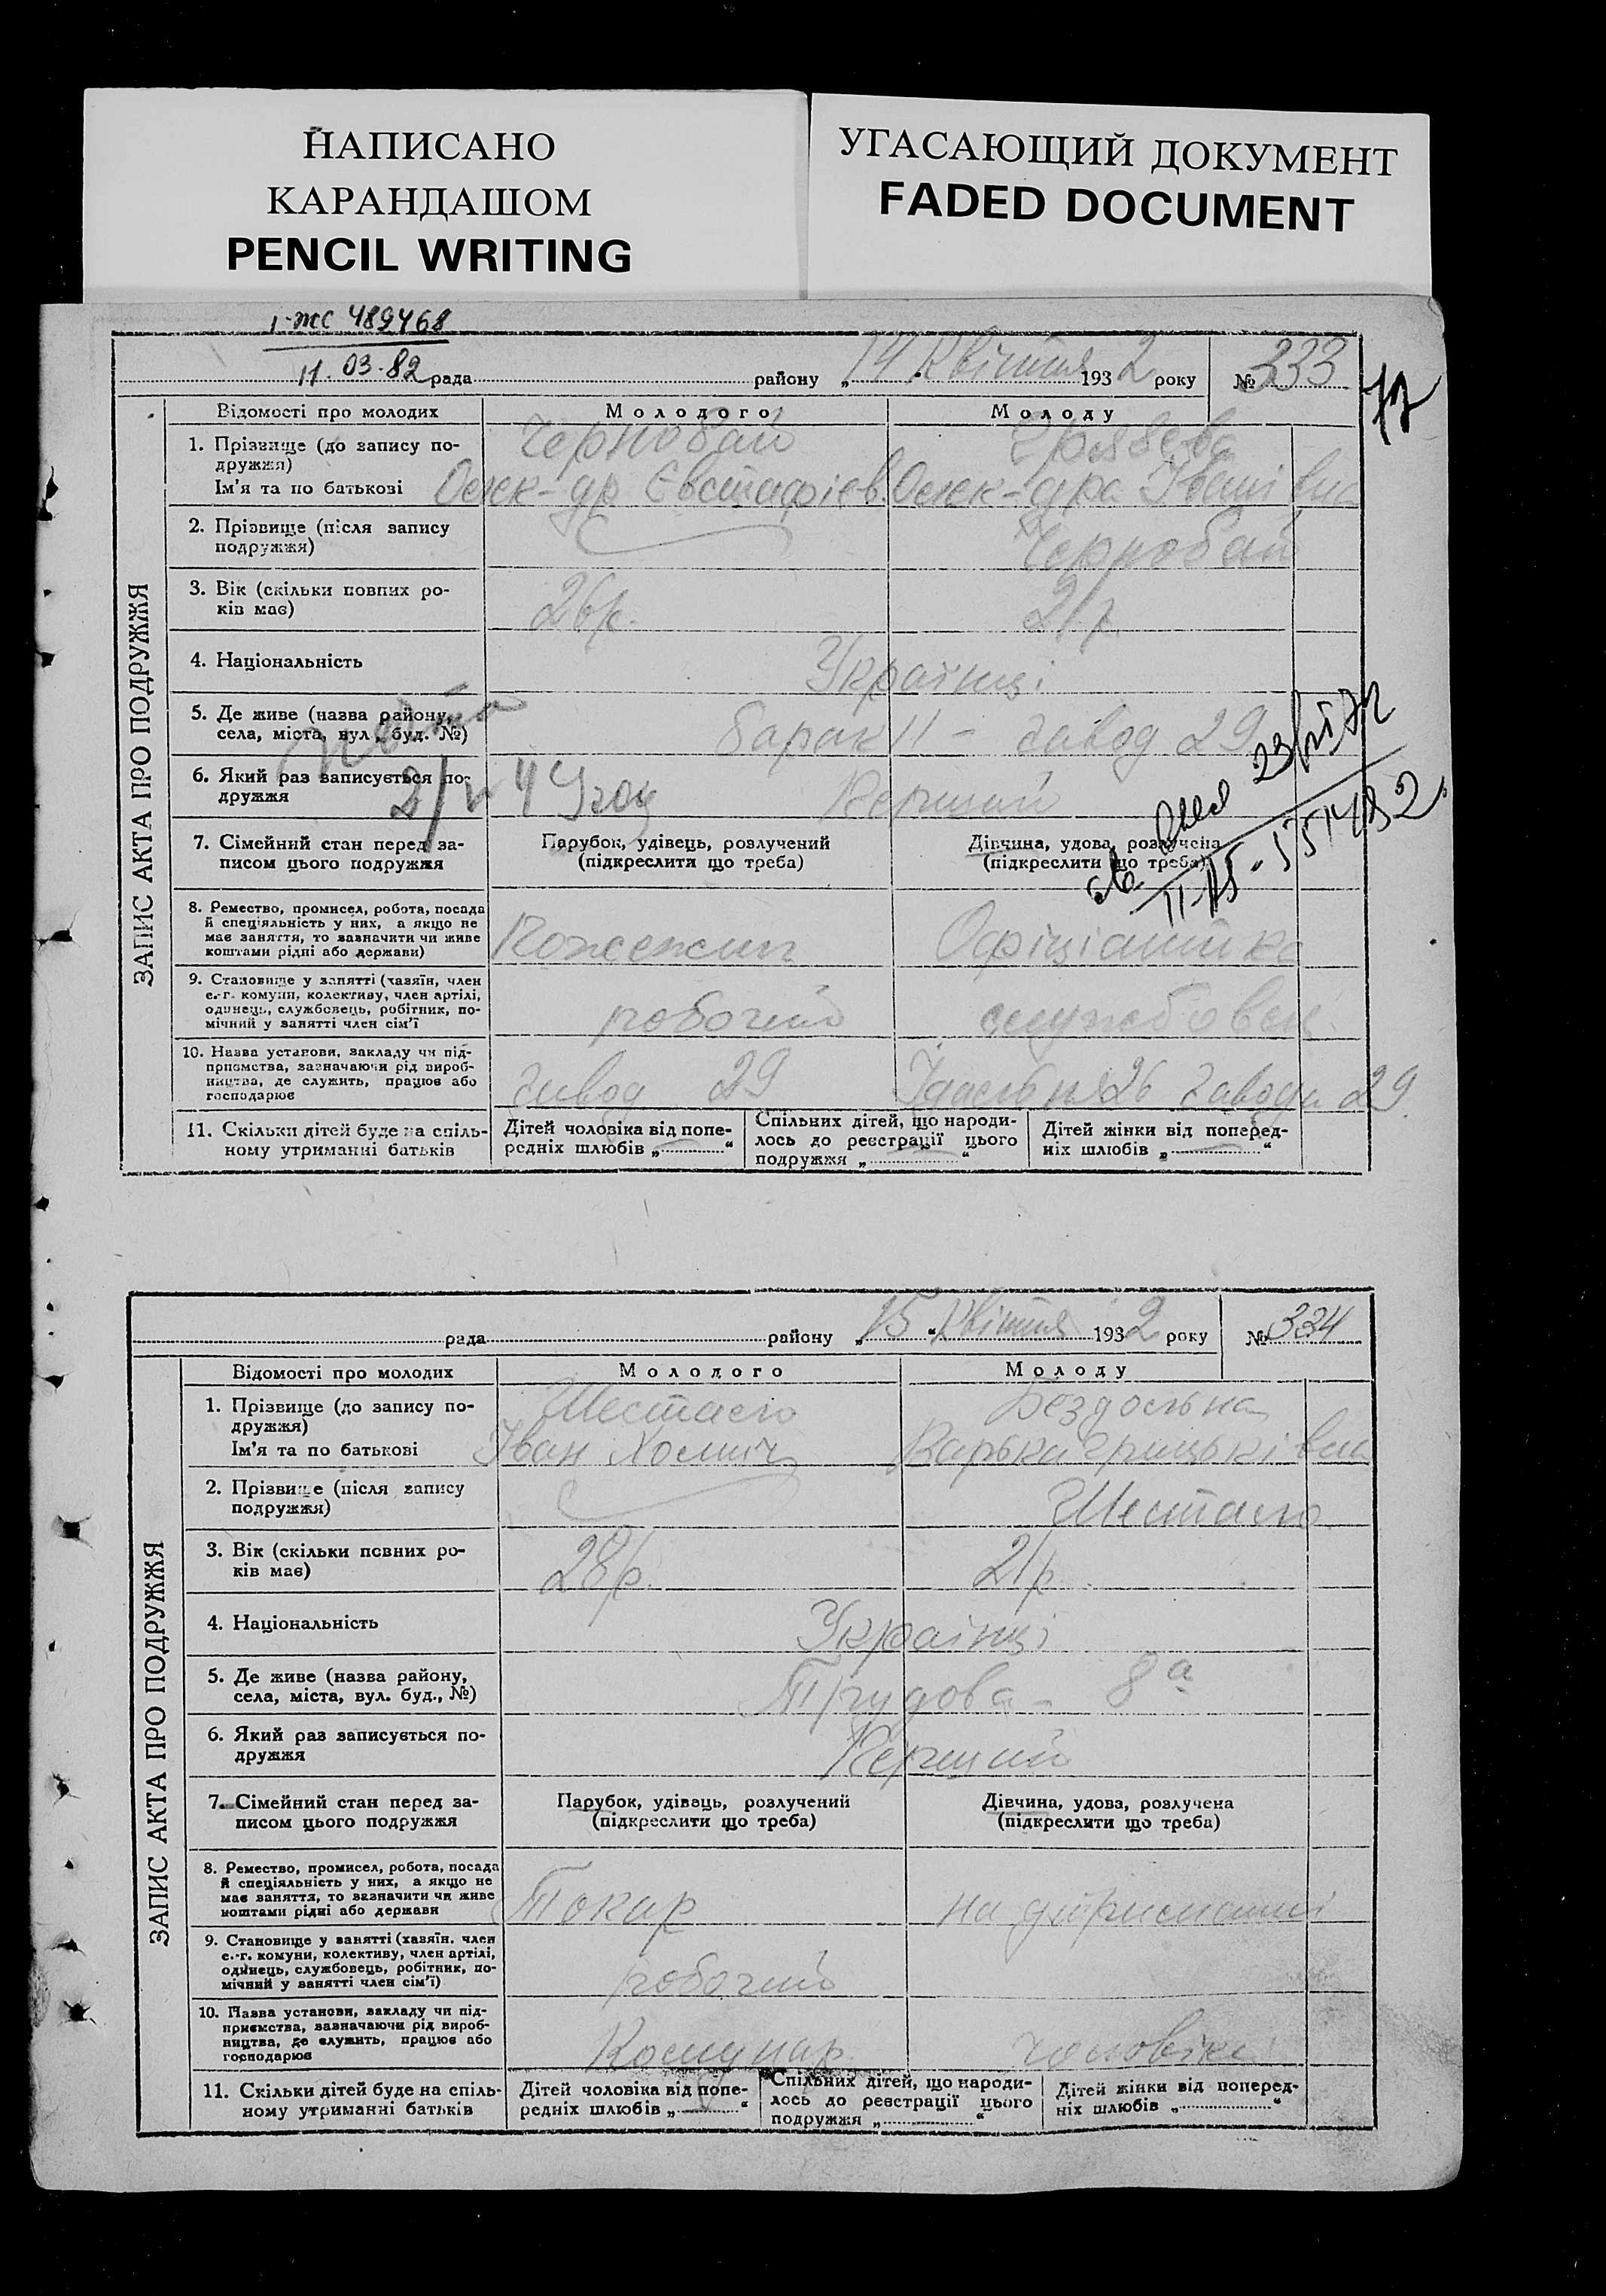 НАПИСАНО
КАРАНДАШОМ
PENCIL WRITING
УГАСАЮЩИЙ ДОКУМЕНТ
FADED DOCUMENT
І-ЖС 489468
11.03.82
рада району „14“ Квітня 1932 року № 333
ЗАПИС АКТА ПРО ПОДРУЖЖЯ
Відомості про молодих Молодого Молоду
1. Прізвище (до запису по- Чернобай
дружжя)
Ім'я та по батькові Олек-др Євстафієв. Олек-дра Іванівна
2. Прізвище (після запису
подружжя) Чернобай
3. Вік (скільки повних ро-
ків має) 26 р. 21 р.
4. Національність Українці
5. Де живе (назва району,
села, міста, вул., буд. №) барак 11 - завод 29
6. Який раз записується по-
дружжя Перший
7. Сімейний стан перед за- Парубок, удівець, розлучений Дівчина, удова, розлучена
писом цього подружжя (підкреслити що треба) (підкреслити що треба)
8. Ремество, промисел, робота, посада
й спеціяльність у них, а якщо не
має заняття, то зазначити чи живе
коштами рідні або держави) Пожежник Офіціантка
9. Становище у занятті (хазяїн, член
с.-г. комуни, колективу, член артілі,
одинець, службовець, робітник, по-
мічний у занятті член сім'ї робочий службовец
10. Назва установи, закладу чи під-
приємства, зазначаючи рід вироб-
ництва, де служить, працює або
господарює завод 29 Їдальня 26 завода 29
11. Скільки дітей буде на спіль-
ному утриманні батьків
Дітей чоловіка від попе-
редніх шлюбів „ “
Спільних дітей, що народи-
лось до реєстрації цього
подружжя „ “
Дітей жінки від поперед-
ніх шлюбів „ “
рада району „15“ Квітня 1932 року № 334
ЗАПИС АКТА ПРО ПОДРУЖЖЯ
Відомості про молодих Молодого Молоду
1. Прізвище (до запису по- Бездольна
дружжя)
Ім'я та по батькові Іван Хомич Варька Грицьківна
2. Прізвище (після запису
подружжя)
3. Вік (скільки повних ро-
ків має) 28 р. 21 р.
4. Національність Українці
5. Де живе (назва району,
села, міста, вул. буд., №) Трудова - 8а
6. Який раз записується по-
дружжя Перший
7. Сімейний стан перед за- Парубок, удівець, розлучений Дівчина, удова, розлучена
писом цього подружжя (підкреслити що треба) (підкреслити що треба)
8. Ремество, промисел, робота, посада
й спеціяльність у них, а якщо не
має заняття, то зазначити чи живе
коштами рідні або держави Токар на
9. Становище у занятті (хазяїн. член
с.-г. комуни, колективу, член артілі,
одинець, службовець, робітник, по-
мічний у занятті член сім'ї) робочий
10. Назва установи, закладу чи під-
приємства, зазначаючи рід вироб-
ництва, де служить, працює або
господарює Комунар чоловіка
11. Скільки дітей буде на спіль-
ному утриманні батьків
Дітей чоловіка від попе-
редніх шлюбів „ “
Спільних дітей, що народи-
лось до реєстрації цього
подружжя „ “
Дітей жінки від поперед-
ніх шлюбів „ “